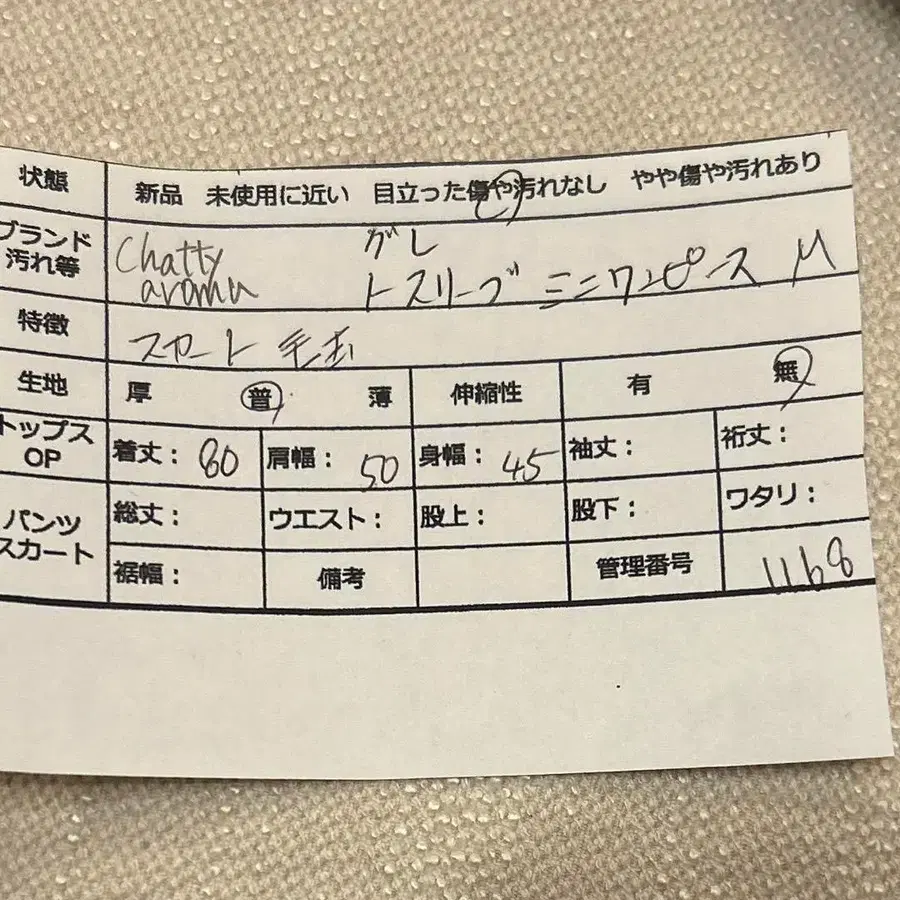 状態 新品 未使用に近い 目立った傷や汚れなし やや傷や汚れあり
ブランド
汚れ等
Chatty グレ
aroma トスリーブ ミニワンピース M
特徴 スカート 毛玉
生地 厚 普 薄 伸縮性 有 無
トップス
OP
着丈: 80 肩幅: 50 身幅: 45 袖丈: 裄丈:
パンツ
スカート
総丈: ウエスト: 股上: 股下: ワタリ:
裾幅: 備考 管理番号 1168